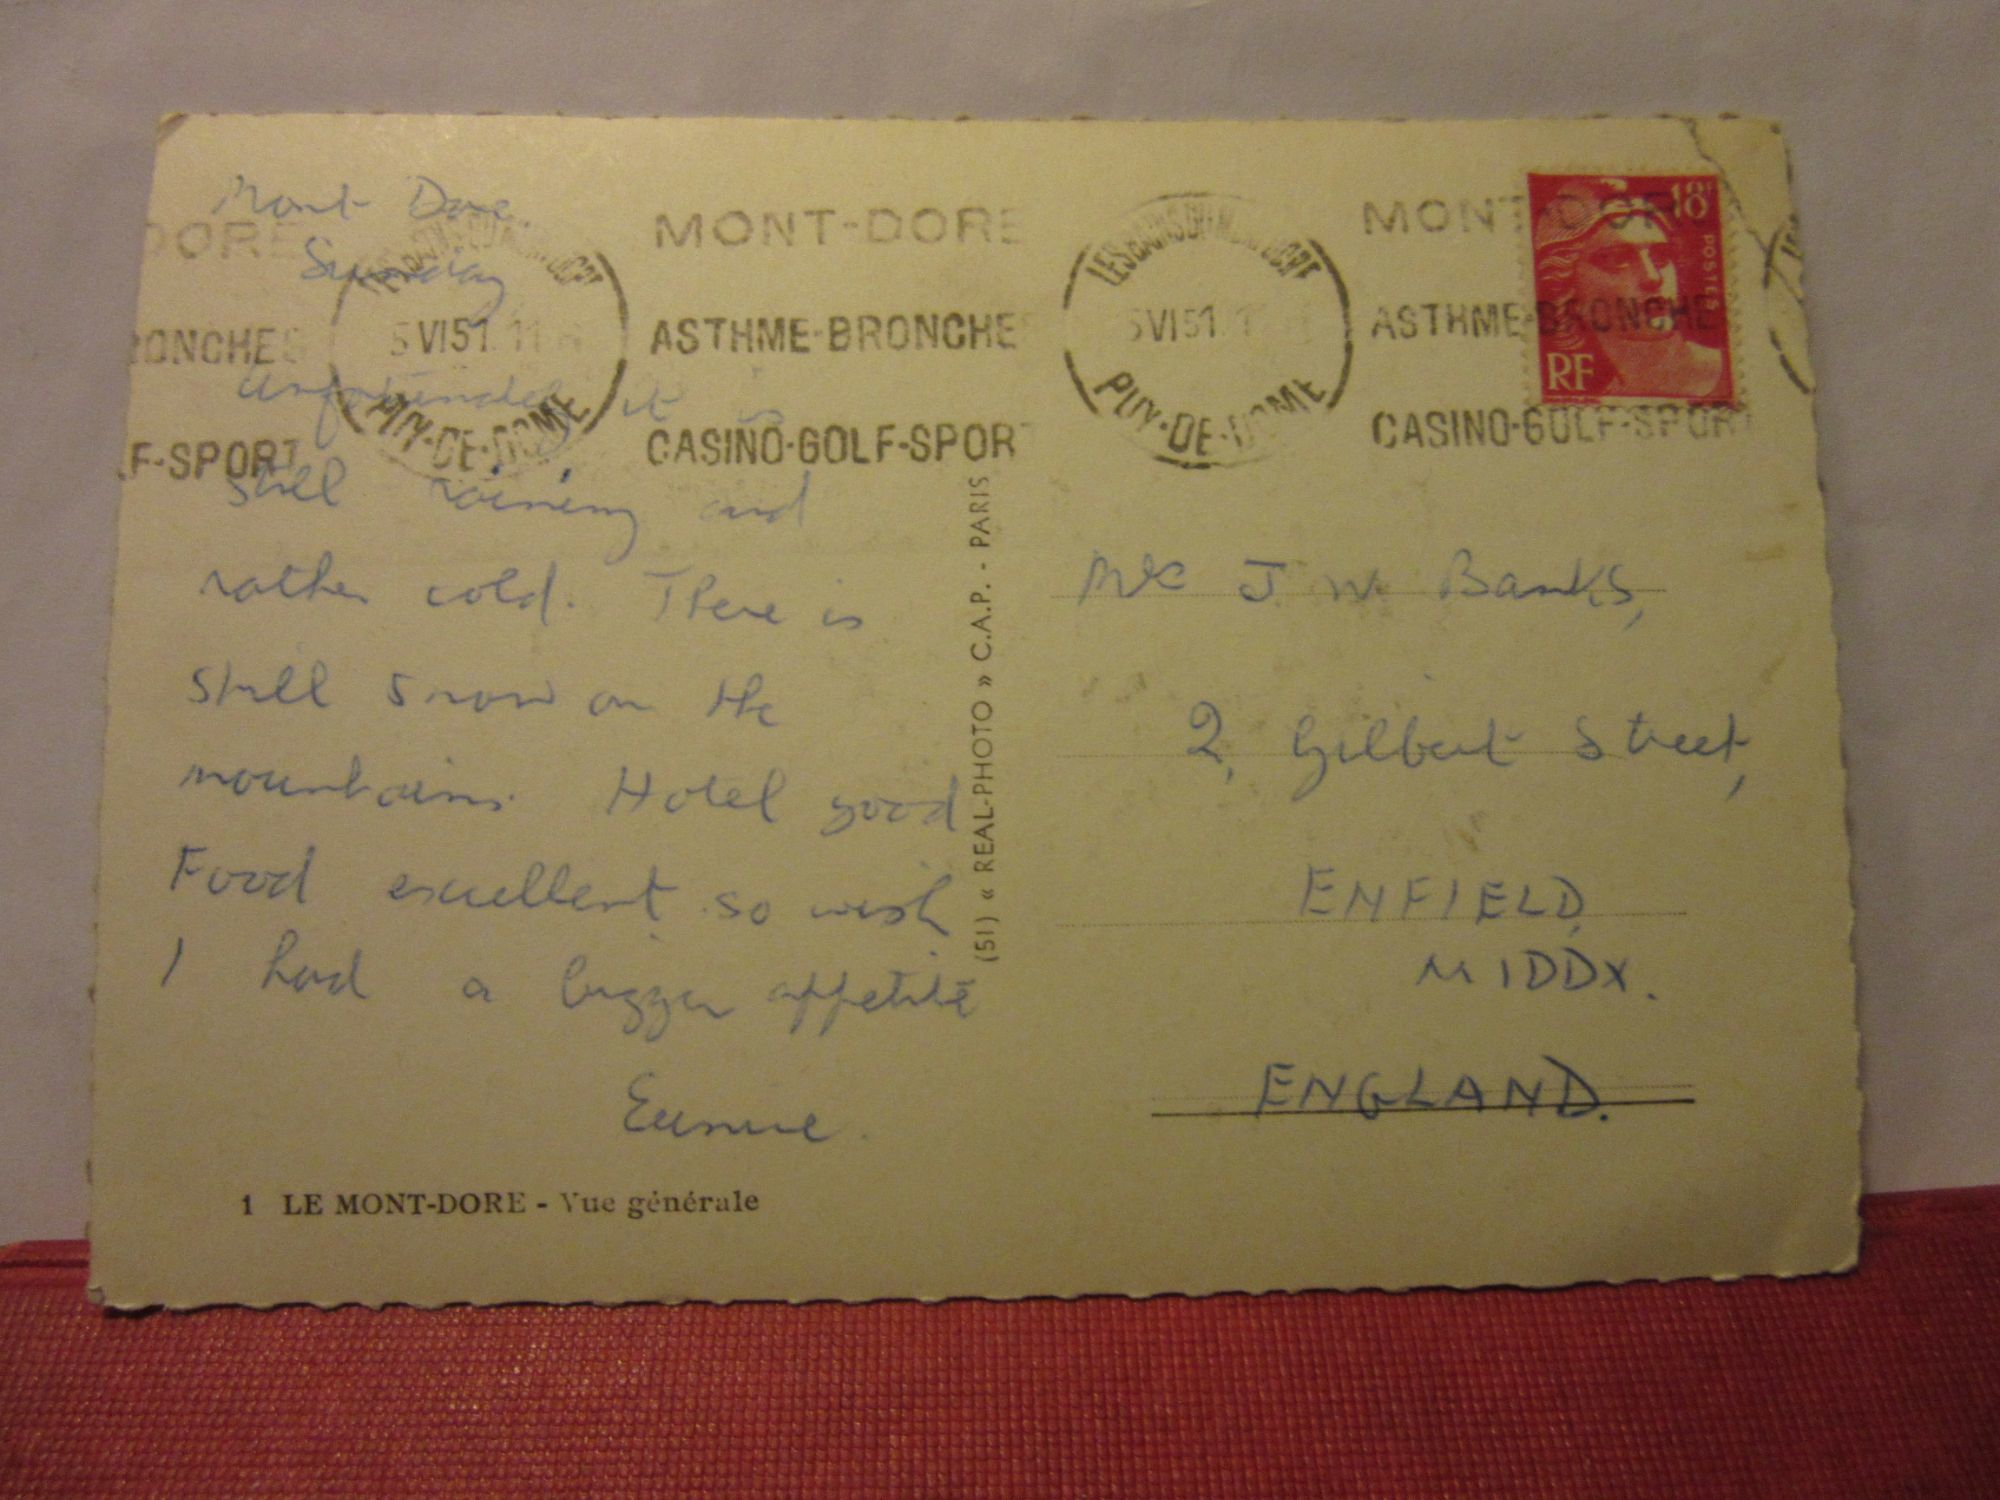 Mont Dore.
Sunday
Unfortunately it is
still raining and
rather cold. There is
still snow on the
mountains. Hotel good
Food excellent so wish
I had a bigger appetite
Eunice.
1 LE MONT-DORE - Vue générale
DORE
RONCHES
LF-SPORT
LES BAINS DU MONT DORE
5 VI 51 11
PUY-DE-DOME
MONT-DORE
ASTHME-BRONCHE
CASINO-GOLF-SPORT
LES BAINS DU MONT DORE
5 VI 51 1
PUY-DE-DOME
MONT-DORE
ASTHME-BRONCHE
CASINO-GOLF-SPORT
18F
POSTES
RF
(51) « REAL-PHOTO » C.A.P. - PARIS
J W. Banks,
2, Gilbert Street,
ENFIELD,
MIDDX.
ENGLAND.